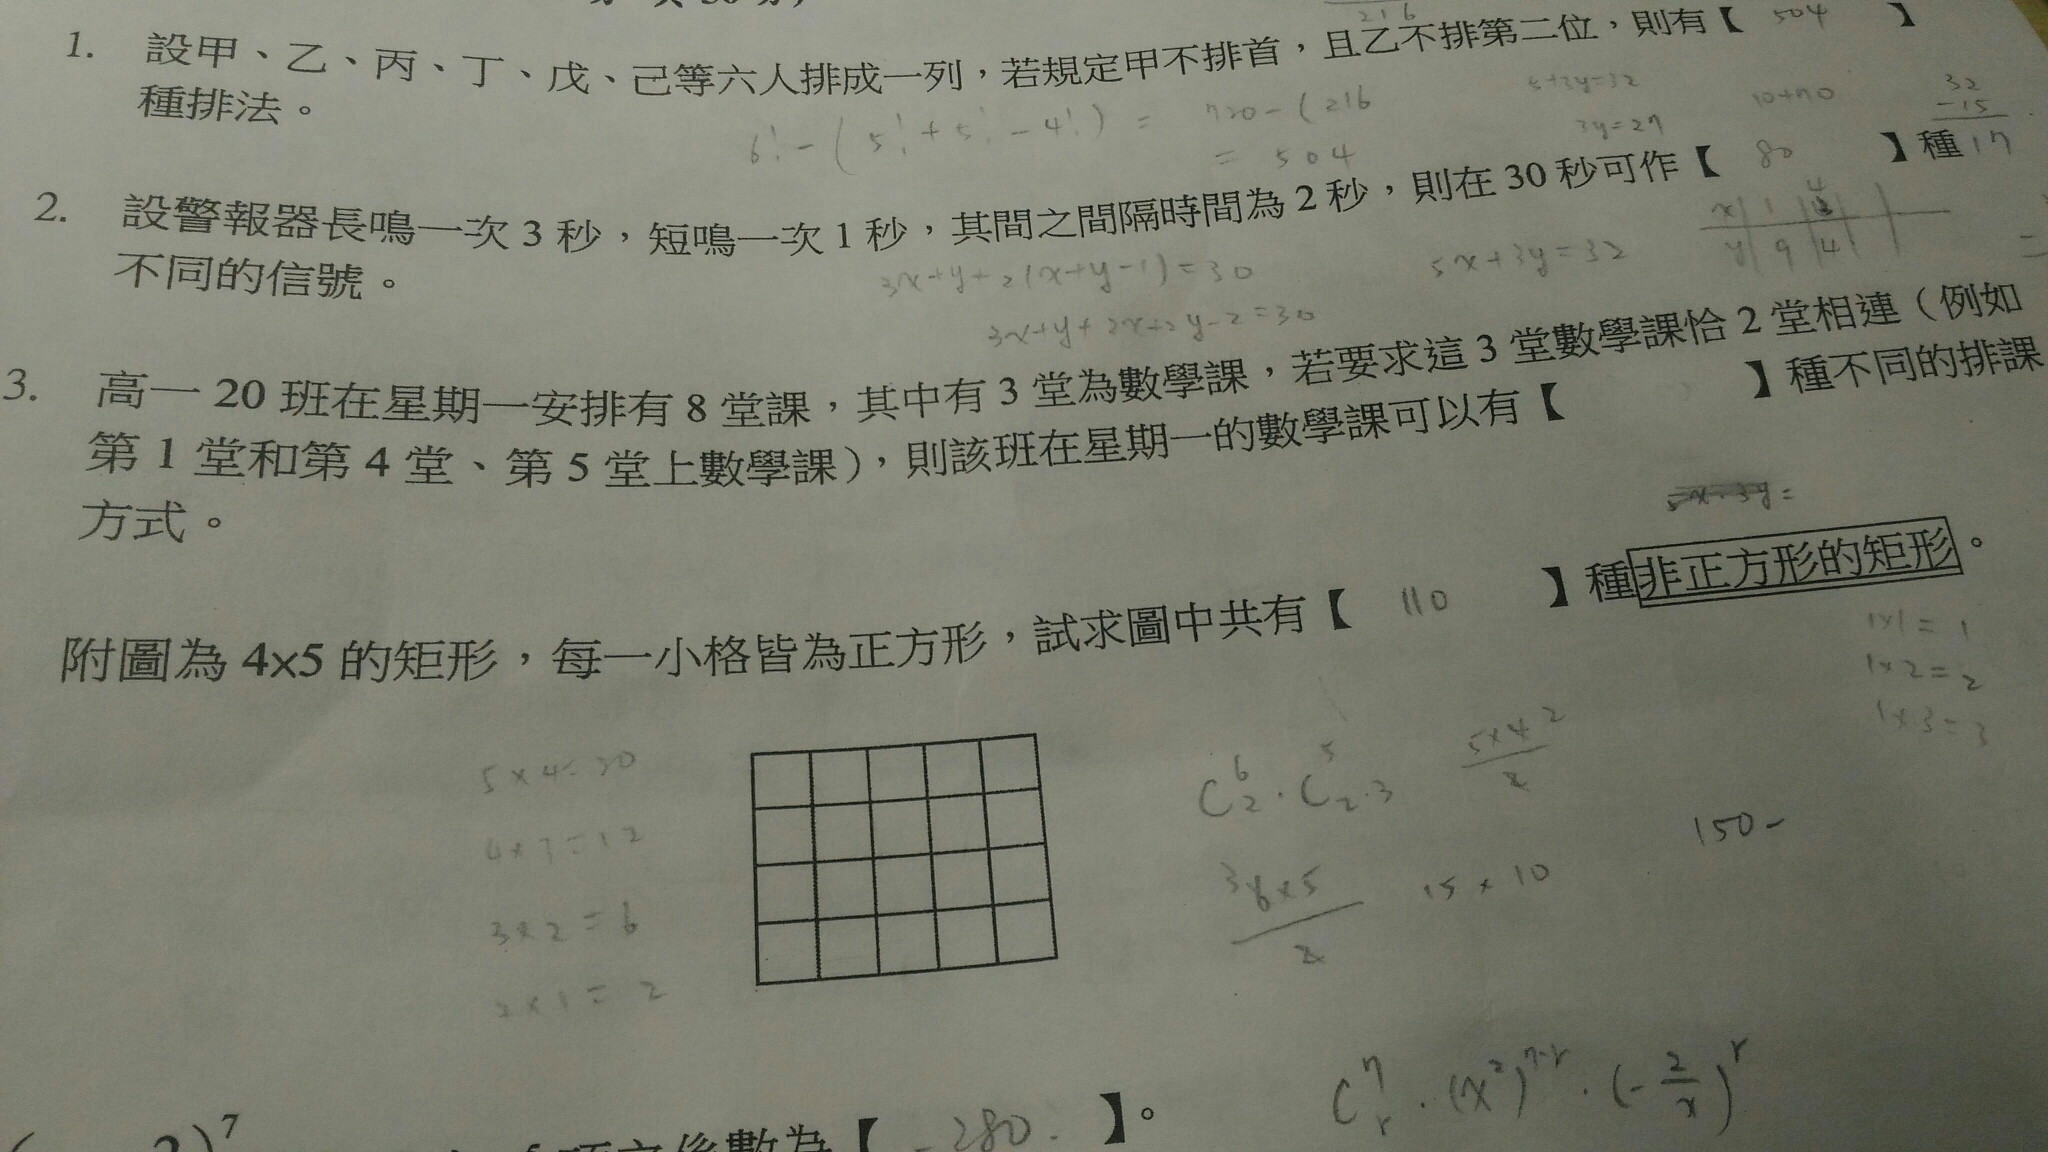 216
1. 設甲、乙、丙、丁、戊、己等六人排成一列，若規定甲不排首，且乙不排第二位，則有【 504 】
種排法。
6! - ( 5! + 5! - 4! ) = 720 - ( 216
= 504
5+3y=32
3y=27
10+70
32
-15
17
2. 設警報器長鳴一次 3 秒，短鳴一次 1 秒，其間之間隔時間為 2 秒，則在 30 秒可作【 80 】種
不同的信號。
3x+y+2(x+y-1)=30
3x+y+2x+2y-2=30
5x+3y=32
x 1 4
y 9 4
3. 高一 20 班在星期一安排有 8 堂課，其中有 3 堂為數學課，若要求這 3 堂數學課恰 2 堂相連（例如
第 1 堂和第 4 堂、第 5 堂上數學課），則該班在星期一的數學課可以有【 】種不同的排課
方式。
附圖為 4×5 的矩形，每一小格皆為正方形，試求圖中共有【 110 】種非正方形的矩形。
1×1=1
1×2=2
1×3=3
5×4=20
4×3=12
3×2=6
2×1=2
15×10
150-
7
【 -280 】。